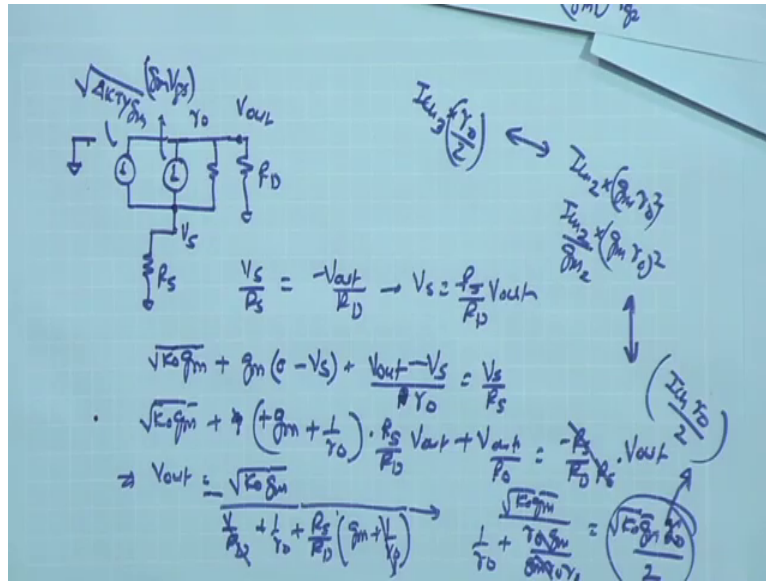 √4KTγgm (gmVgs)
r0 Vout
RD
VS
RS
Iin3 × (r0/2) ↔ Iin2 × (gm r0)2
Iin2/gm2 × (gm r0)2
VS/RS = -Vout/RD → VS = RS/RD Vout
√K0gm + gm(0 - VS) + (Vout - VS)/r0 = VS/RS
√K0gm + (+gm + 1/r0) · RS/RD Vout + Vout/r0 = -RS/(RD RS) · Vout
(Iin r0/2)
⇒ Vout = -√K0gm / (1/RD + 1/r0 + RS/RD (gm + 1/r0)) → √K0gm / (1/r0 + r0 gm/(gm r0 r0)) = √K0gm r0/2